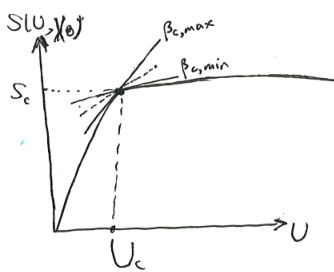 S(U,
β_c,max
β_c,min
S_c
U
U_c